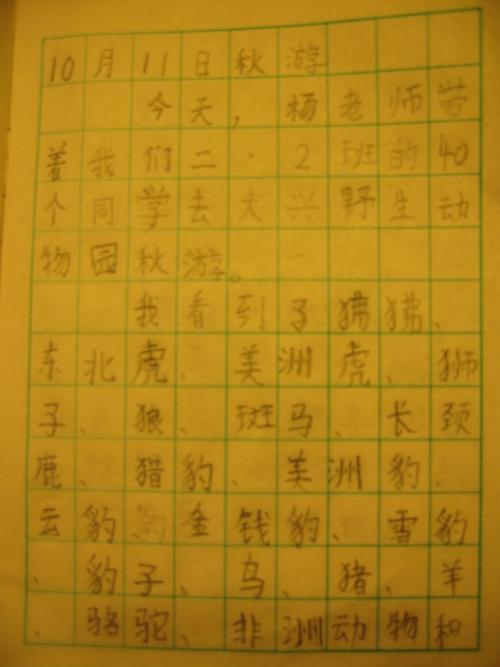 10月11日秋游
今天，杨老师带
着我们二·2班的40
个同学去大兴野生动
物园秋游。
我看到了狒狒、
东北虎、美洲虎、狮
子、狼、斑马、长颈
鹿、猎豹、美洲豹、
云豹、金钱豹、雪豹
、豹子、鸟、猪、羊
、骆驼、非洲动物和